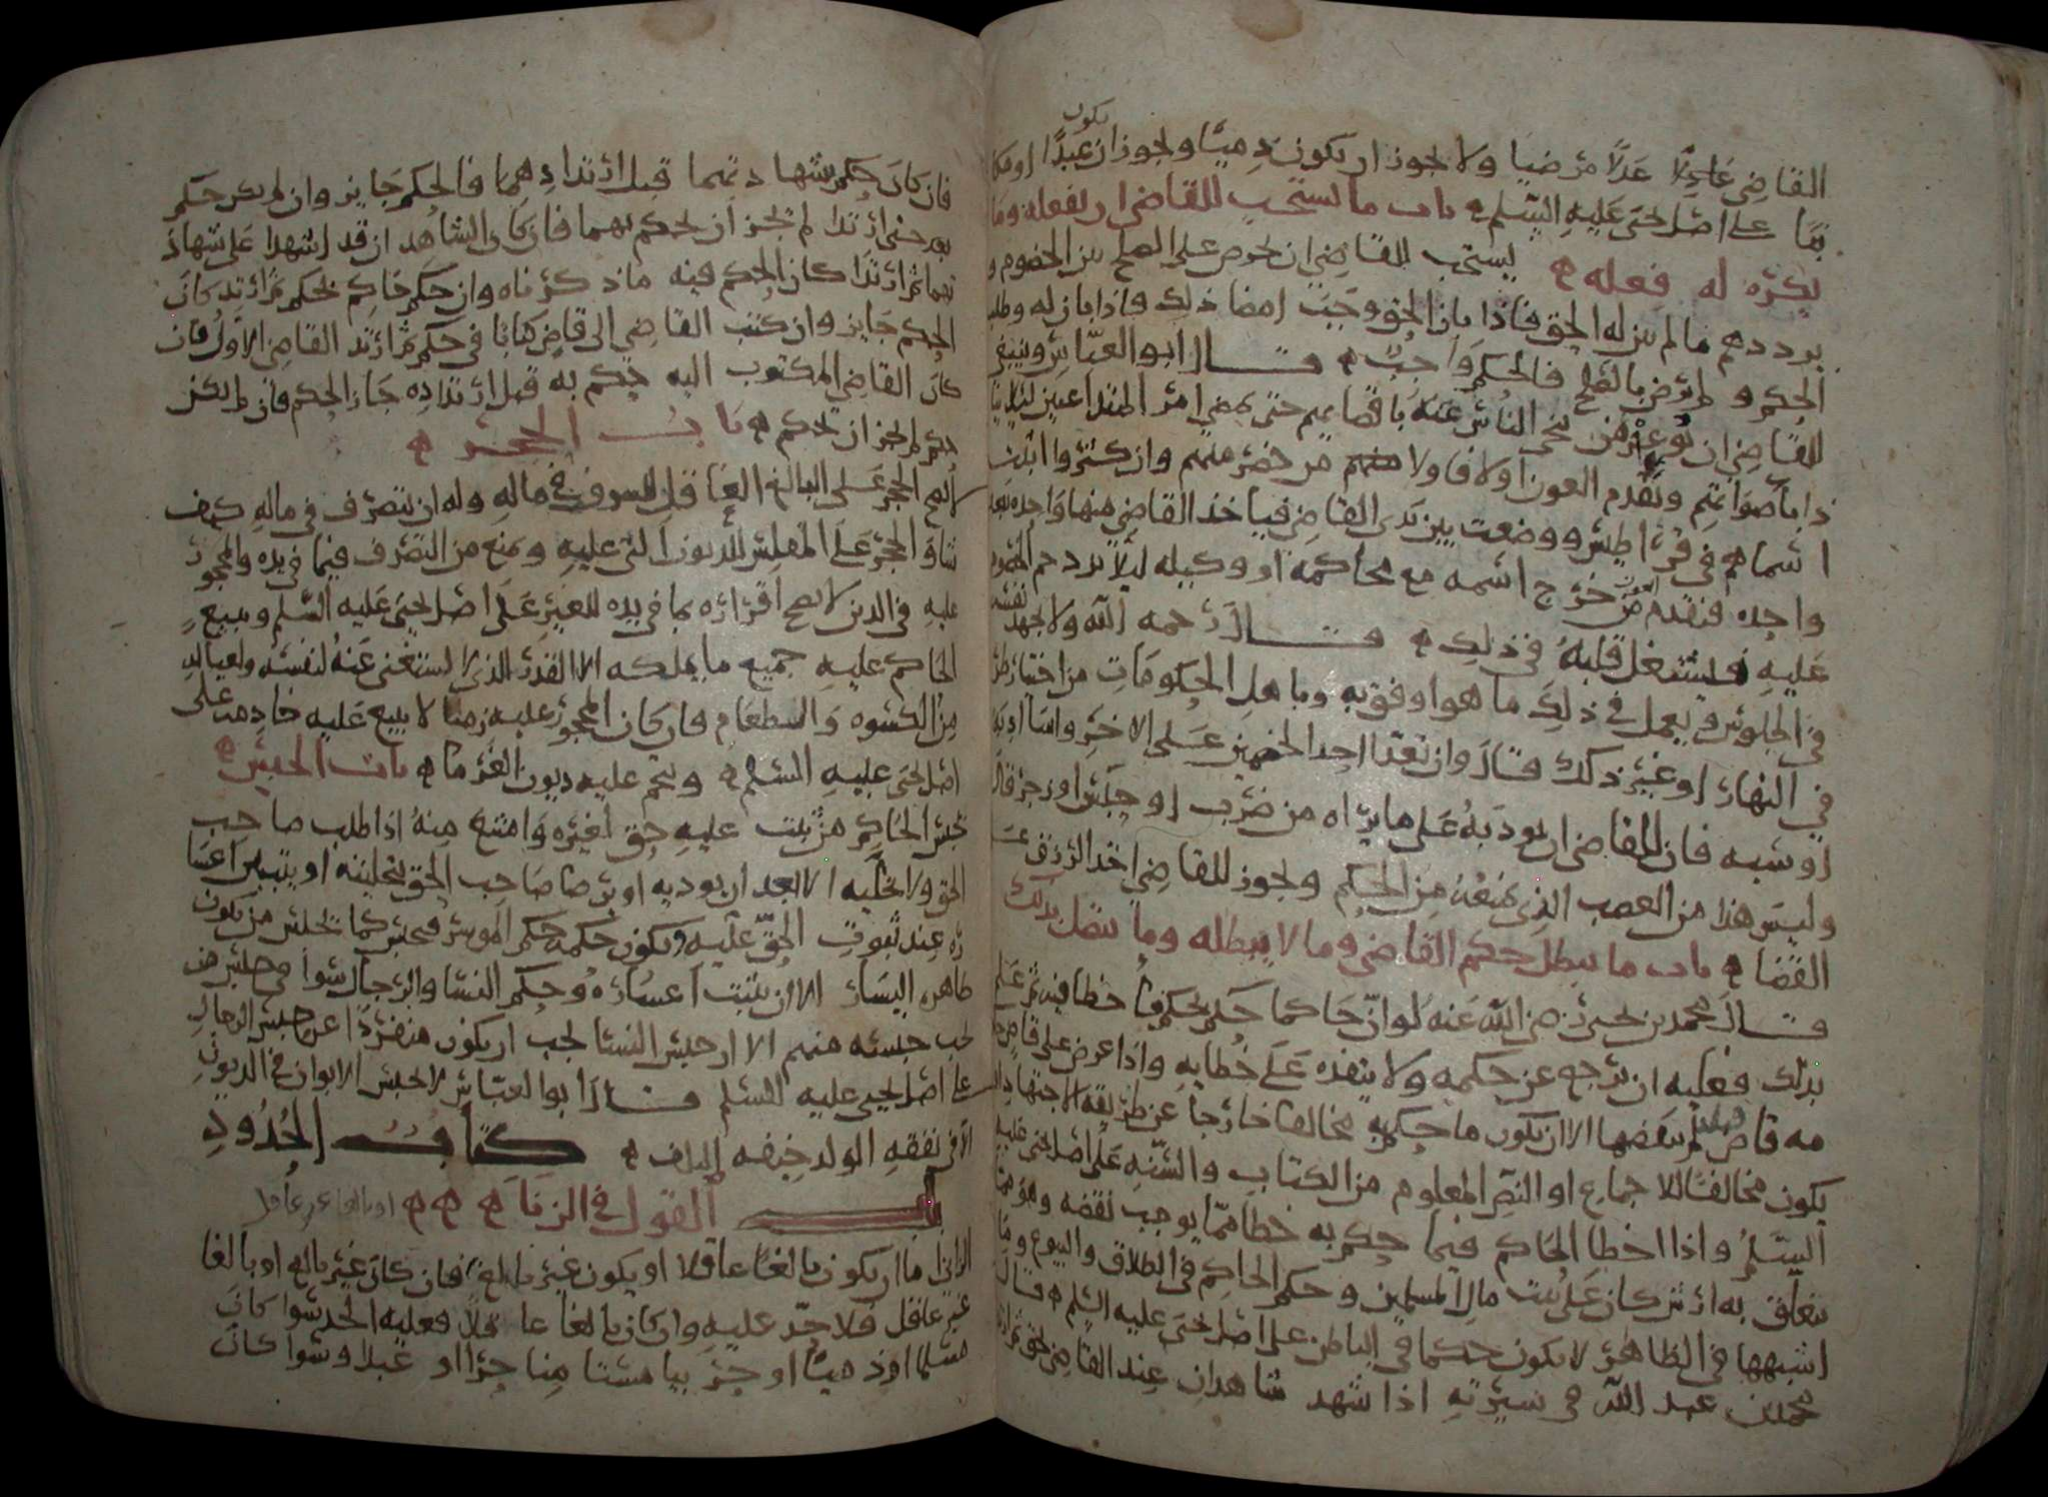 يكون
القاضي عادلا عدلا مرضيا ولا يجوز ان يكون ذميا ويجوز ان عبدا او مكا
تبا على اصل يحيى عليه السلم ه باب ما يستحب للقاضي ان يفعله وما
يكره له فعله ه يستحب للقاضي ان يحرص على الصلح بين الخصوم و
يرددهم ما لم يبن له الحق فاذا بان الحق وجب امضا ذلك فاذا بان له وطلب
الحكم و لم يرض بالصلح فالحكم واجب ه قال ابو العباس وينبغي
للقاضي ان من ينحي الناس عنه باقصابهم حتى يمضي امر المتداعيين ليلا
ذا باصواتهم ويقدم العون اولا فاولا من حضر منهم وان كثروا اثبت
اسماهم في قراطيس ووضعت بين يدي القاضي فياخذ القاضي منها واحده بعد
واحده فيقدم من خرج اسمه مع محاكمه او وكيله ليلا يزدحم الخصوم
عليه فيشتغل قلبه في ذلك ه قال رحمه الله ولا يجهد نفسه
في الجلوس ويعمل في ذلك ما هو اوفق به وباهل الحكومات من اختيار طرفي
في النهار او غير ذلك قال وان تعدا احد الخصمين على الاخر واسا ادبه
او شبه فان للقاضي ان يودبه على ما يراه من ضرب او حبس او زجر قال
وليس هذا من الغضب الذي يمنعه من الحكم ويجوز للقاضي اخذ الرزق على
القضا ه باب ما يبطل حكم القاضي وما لا يبطله وما يتصل بذلك
قال محمد بن يحيى رضي الله عنه لو ان حاكما حكم بحكم خطا فيه ثم علم
بذلك فعليه ان يرجع عن حكمه ولا ينفذه على خطايه واذا عرض على قاض
مه قاض قبله لم ينقضها الا ان يكون ما حكم به مخالفا خارجا عن طريقة الاجتهاد
يكون مخالفا للاجماع او النص المعلوم من الكتاب والسنه على اصل يحيى عليه
السلم واذا اخطا الحاكم فيما حكم به خطا مما يوجب نقضه وهو مما
يتعلق به ارش كان على بيت مال المسلمين وحكم الحاكم في الطلاق والبيوع وما
اشبهها في الظاهر لا يكون حكما في الباطن على اصل يحيى عليه السلم ه قال
محمد بن عبد الله في سيرته اذا شهد شاهدان عند القاضي بحق ثم ارتدا
فان كان حكم بشهادتهما قبل ارتدادهما فالحكم جايز وان لم يكن حكم
بها حتى ارتدا لم يجز ان يحكم بهما فان كان الشاهدان قد اشهدا على شهاد
تهما ثم ارتدا كان الحكم فيه ما ذكرناه وان حكم حاكم بحكم ثم ارتد كان
الحكم جايز وان كتب القاضي الى قاض كتابا في حكم ثم ارتد القاضي الاول فان
كان القاضي المكتوب اليه حكم به قبل ارتداده جاز الحكم فان لم يكن
حكم لم يجز ان يحكم ه باب الحجر ه
لا يصح الحجر على البالغ العاقل المسرف في ماله وله ان يتصرف في ماله كيف
شا والحجر على المفلس للديون التي عليه ويمنع من التصرف فيما في يده والمحجور
عليه في الدين لا يصح اقراره بما في يده للغير على اصل يحيى عليه السلم ويبيع
الحاكم عليه جميع ما يملكه الا القدر الذي لا يستغني عنه لنفسه ولعياله
من الكسوه والطعام فان كان المحجور عليه زمنا لا يبيع عليه خادمه على
اصل يحيى عليه السلم ه وينجم عليه ديون الغرما ه باب الحبس ه
يحبس الحاكم من ثبت عليه حق لغيره وامتنع منه اذا طلب صاحب
الحق ولا يخليه الا بعد ان يوديه او يرضا صاحب الحق بتخليته او يتبين اعسا
ره عند ثبوت الحق عليه ويكون حكمه حكم الموسر فيحبس كما يحبس من يكون
ظاهره اليسار الا ان يثبت اعساره وحكم النسا والرجال سوا في حبس من
يجب حبسه منهم الا ان حبس النسا يجب ان يكون منفردا عن حبس الرجال
على اصل يحيى عليه السلم قال ابو العباس لا يحبس الابوان في الديون
الا في نفقه الولد خيفه التلف ه كتاب الحدود
باب القول في الزنا ه ه ه او بالغا غير عاقل
الزاني اما ان يكون بالغا عاقلا او يكون غير بالغ فان كان غير بالغ او بالغا
غير عاقل فلا حد عليه وان كان بالغا عاقلا فعليه الحد سوا كان
مسلما او ذميا او حربيا مستامنا حرا او عبدا وسوا كان